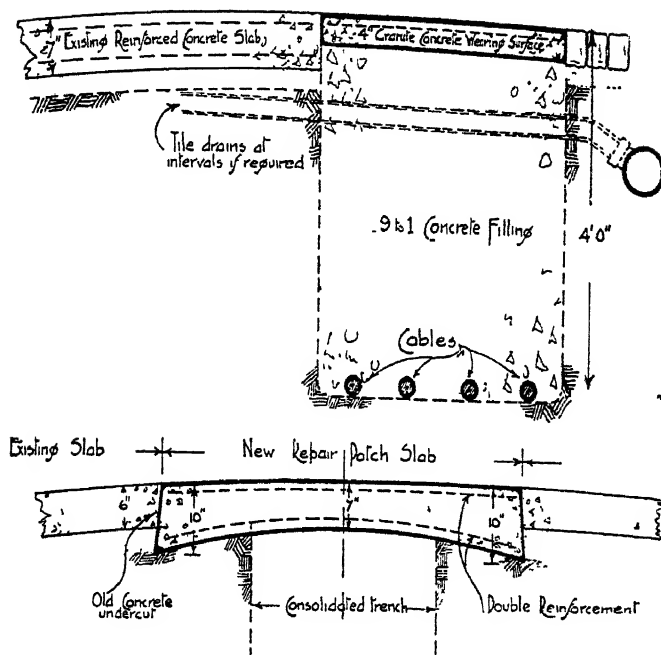 7"
Existing Reinforced Concrete Slab
4" Granite Concrete Wearing Surface
Tile drains at
intervals if required
9 to 1 Concrete Filling
4'0"
Cables
Existing Slab
New Repair Patch Slab
6"
10"
7"
10"
Old Concrete
undercut
Consolidated trench
Double Reinforcement